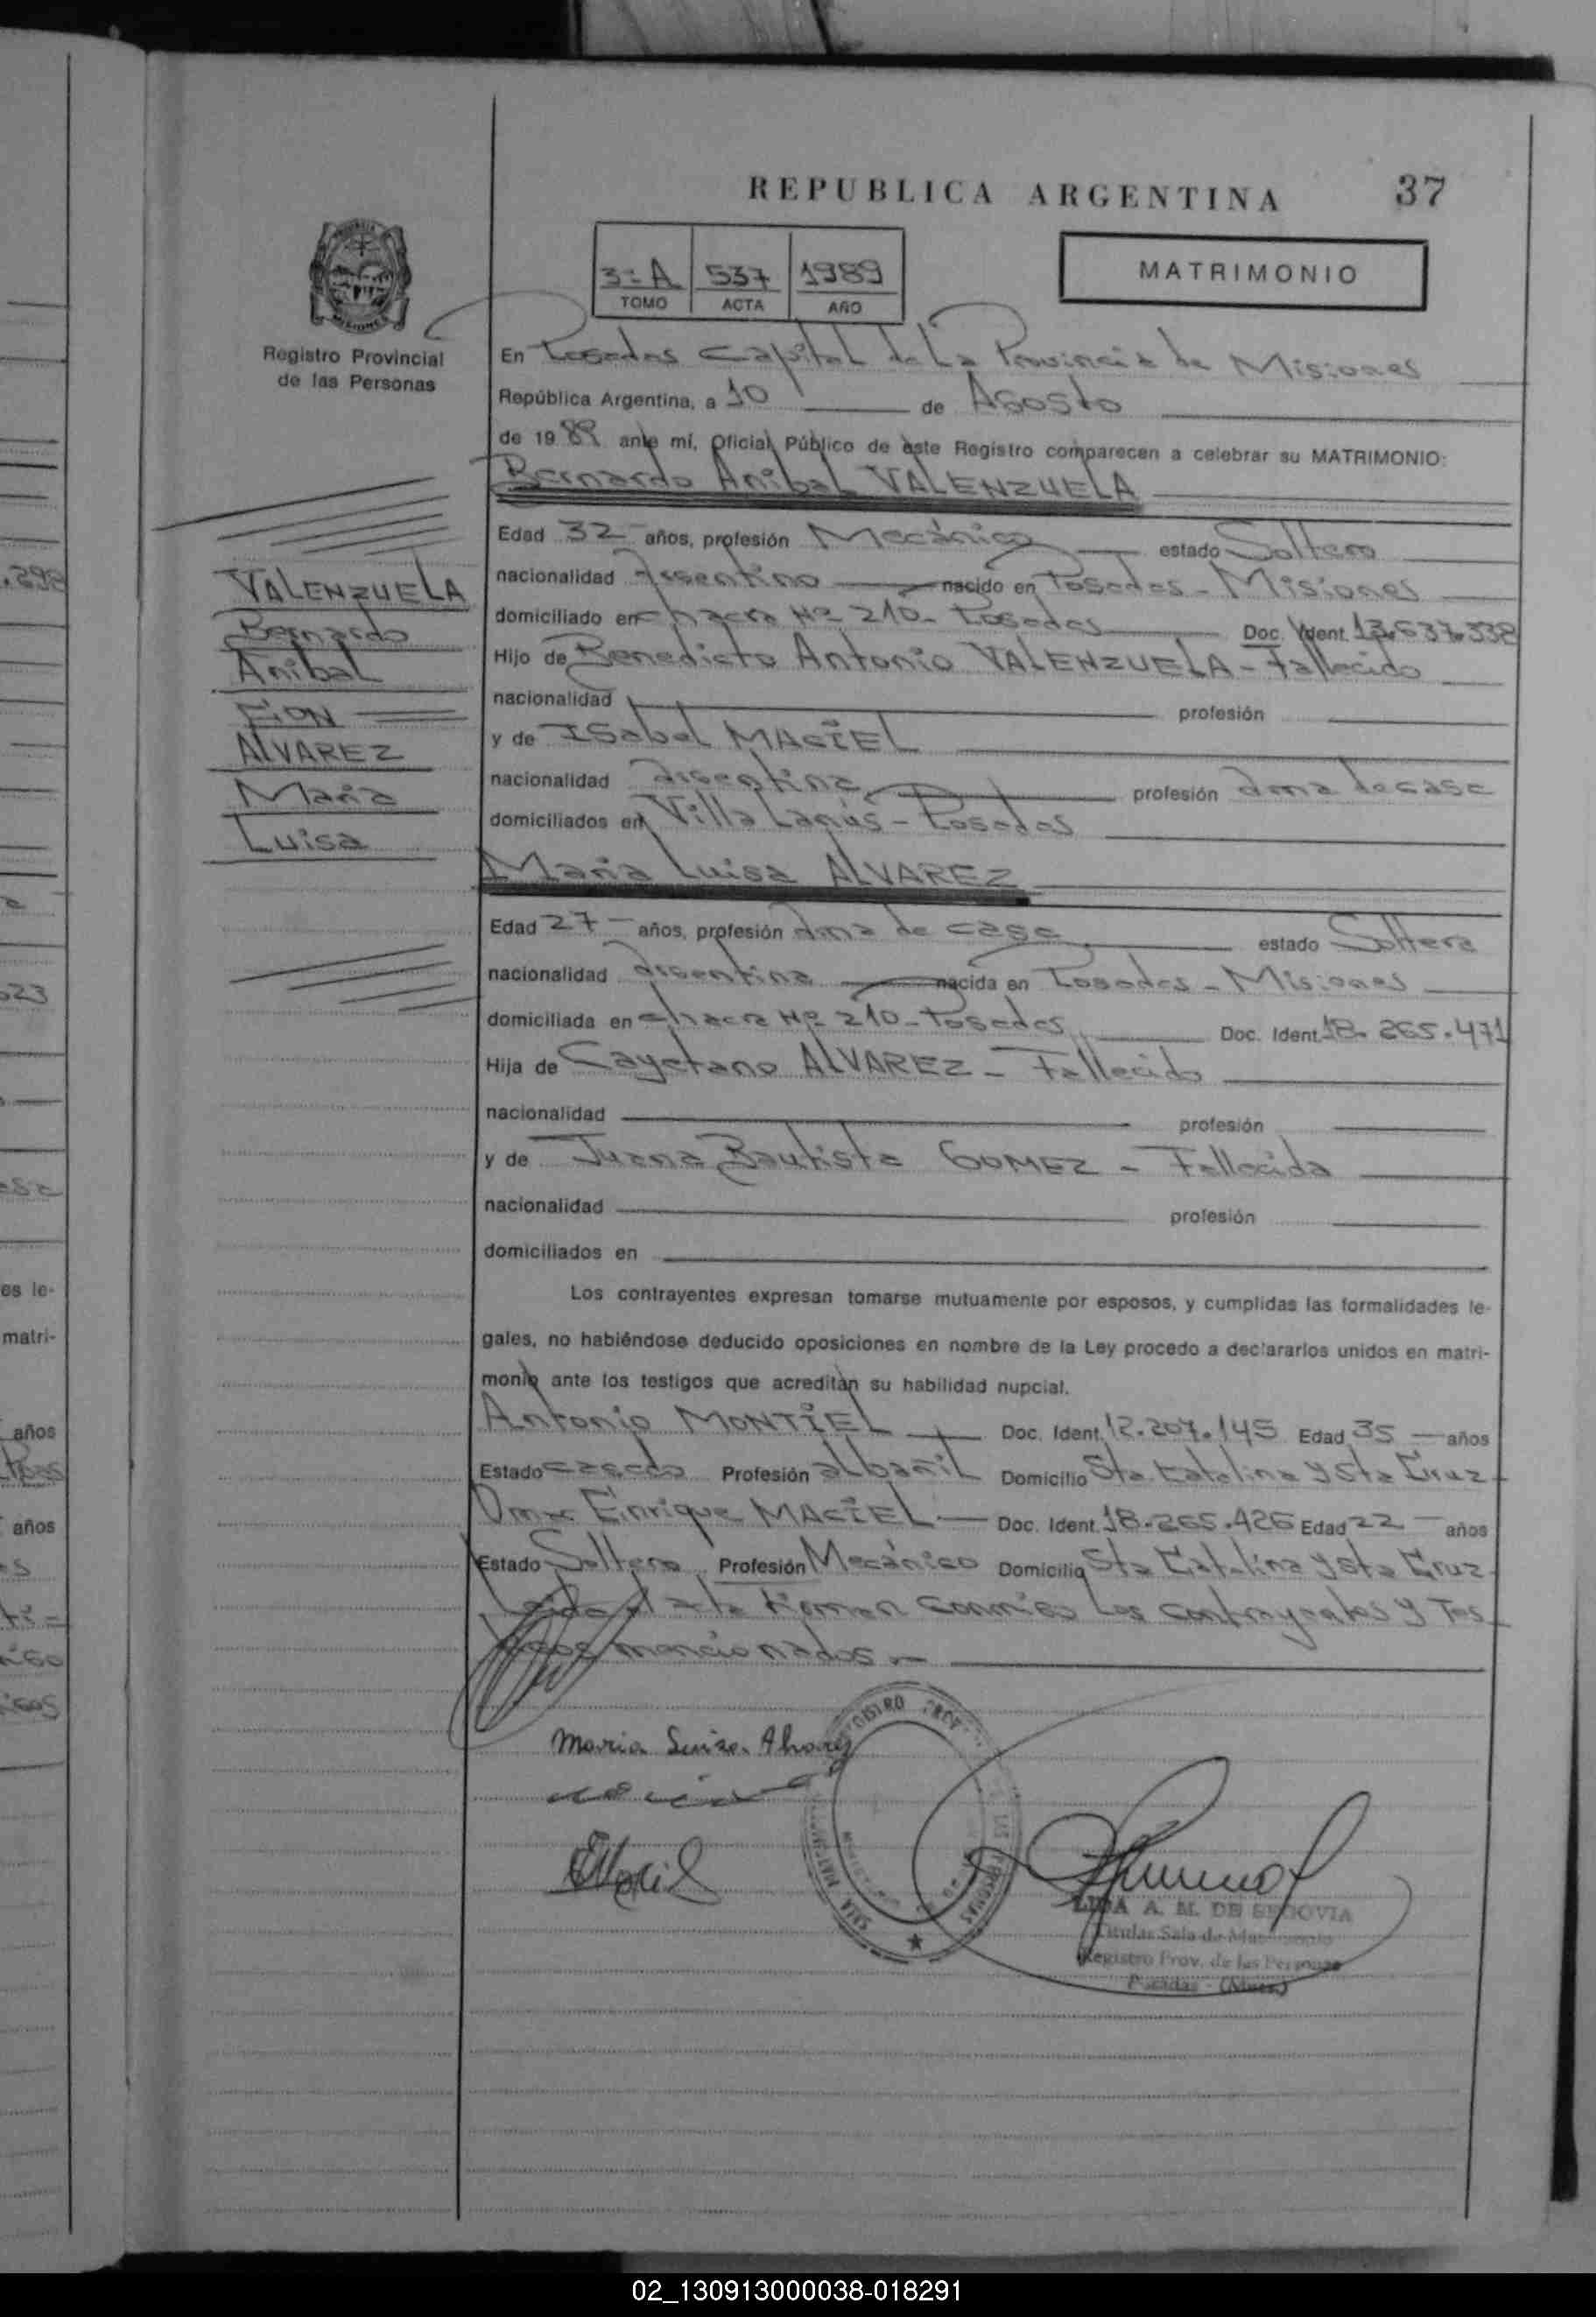 REPUBLICA ARGENTINA 37
3=A 537 1989
TOMO ACTA AÑO
MATRIMONIO
MISIONES
Registro Provincial
de las Personas
En Posadas Capital de La Provincia de Misiones
República Argentina, a 10 de Agosto
de 1989 ante mí, Oficial Público de este Registro comparecen a celebrar su MATRIMONIO:
Bernardo Anibal VALENZUELA
Edad 32 años, profesión Mecánico estado Soltero
nacionalidad Argentino nacido en Posadas - Misiones
domiciliado en chacra Nº 210 - Posadas Doc. Ident. 13.637.338
Hijo de Benedicto Antonio VALENZUELA - Fallecido
nacionalidad profesión
y de ISabel MACIEL
nacionalidad argentina profesión ama de casa
domiciliados en Villa Lanús - Posadas
VALENZUELA
Bernardo
Anibal
CON
ALVAREZ
Maria
Luisa
Maria Luisa ALVAREZ
Edad 27 años, profesión ama de casa estado Soltera
nacionalidad argentina nacida en Posadas - Misiones
domiciliada en chacra Nº 210 - Posadas Doc. Ident. 18.265.471
Hija de Cayetano ALVAREZ - Fallecido
nacionalidad profesión
y de Juana Bautista GOMEZ - Fallecida
nacionalidad profesión
domiciliados en
Los contrayentes expresan tomarse mutuamente por esposos, y cumplidas las formalidades le-
gales, no habiéndose deducido oposiciones en nombre de la Ley procedo a declararlos unidos en matri-
monio ante los testigos que acreditan su habilidad nupcial.
Antonio MONTIEL Doc. Ident. 12.207.145 Edad 35 años
Estado casado Profesión albañil Domicilio Sta. Catalina y Sta Cruz
Omar Enrique MACIEL Doc. Ident. 18.265.426 Edad 22 años
Estado Soltero Profesión Mecánico Domicilio Sta Catalina y Sta Cruz
Leida el acta firman conmigo Los contrayentes y Tes
tigos mencionados
Maria Luisa Alvarez
LIDA A. M. DE SEGOVIA
Titular Sala de Matrimonio
Registro Prov. de las Personas
Posadas - (Mnes.)
.298
023
es le-
matri-
años
años
02_130913000038-018291